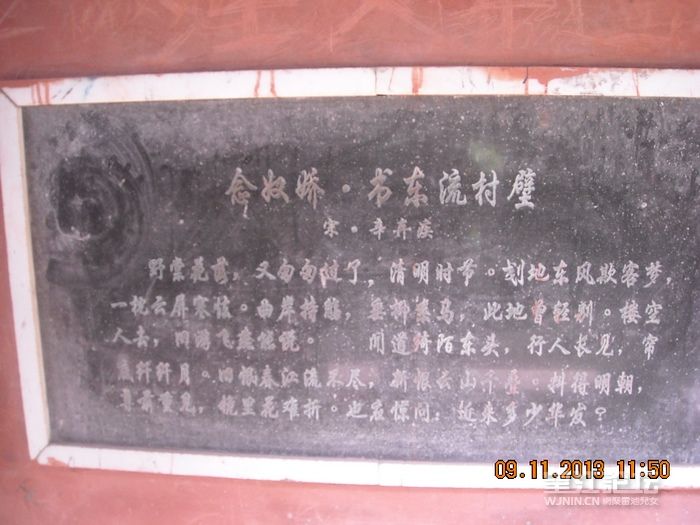 念奴娇·书东流村壁
宋·辛弃疾
野棠花落，又匆匆过了，清明时节。刬地东风欺客梦，
一枕云屏寒怯。曲岸持觞，垂柳系马，此地曾轻别。楼空
人去，旧游飞燕能说。 闻道绮陌东头，行人长见，帘
底纤纤月。旧恨春江流不尽，新恨云山千叠。料得明朝，
尊前重见，镜里花难折。也应惊问：近来多少华发？
09.11.2013 11:50
WJNIN.CN